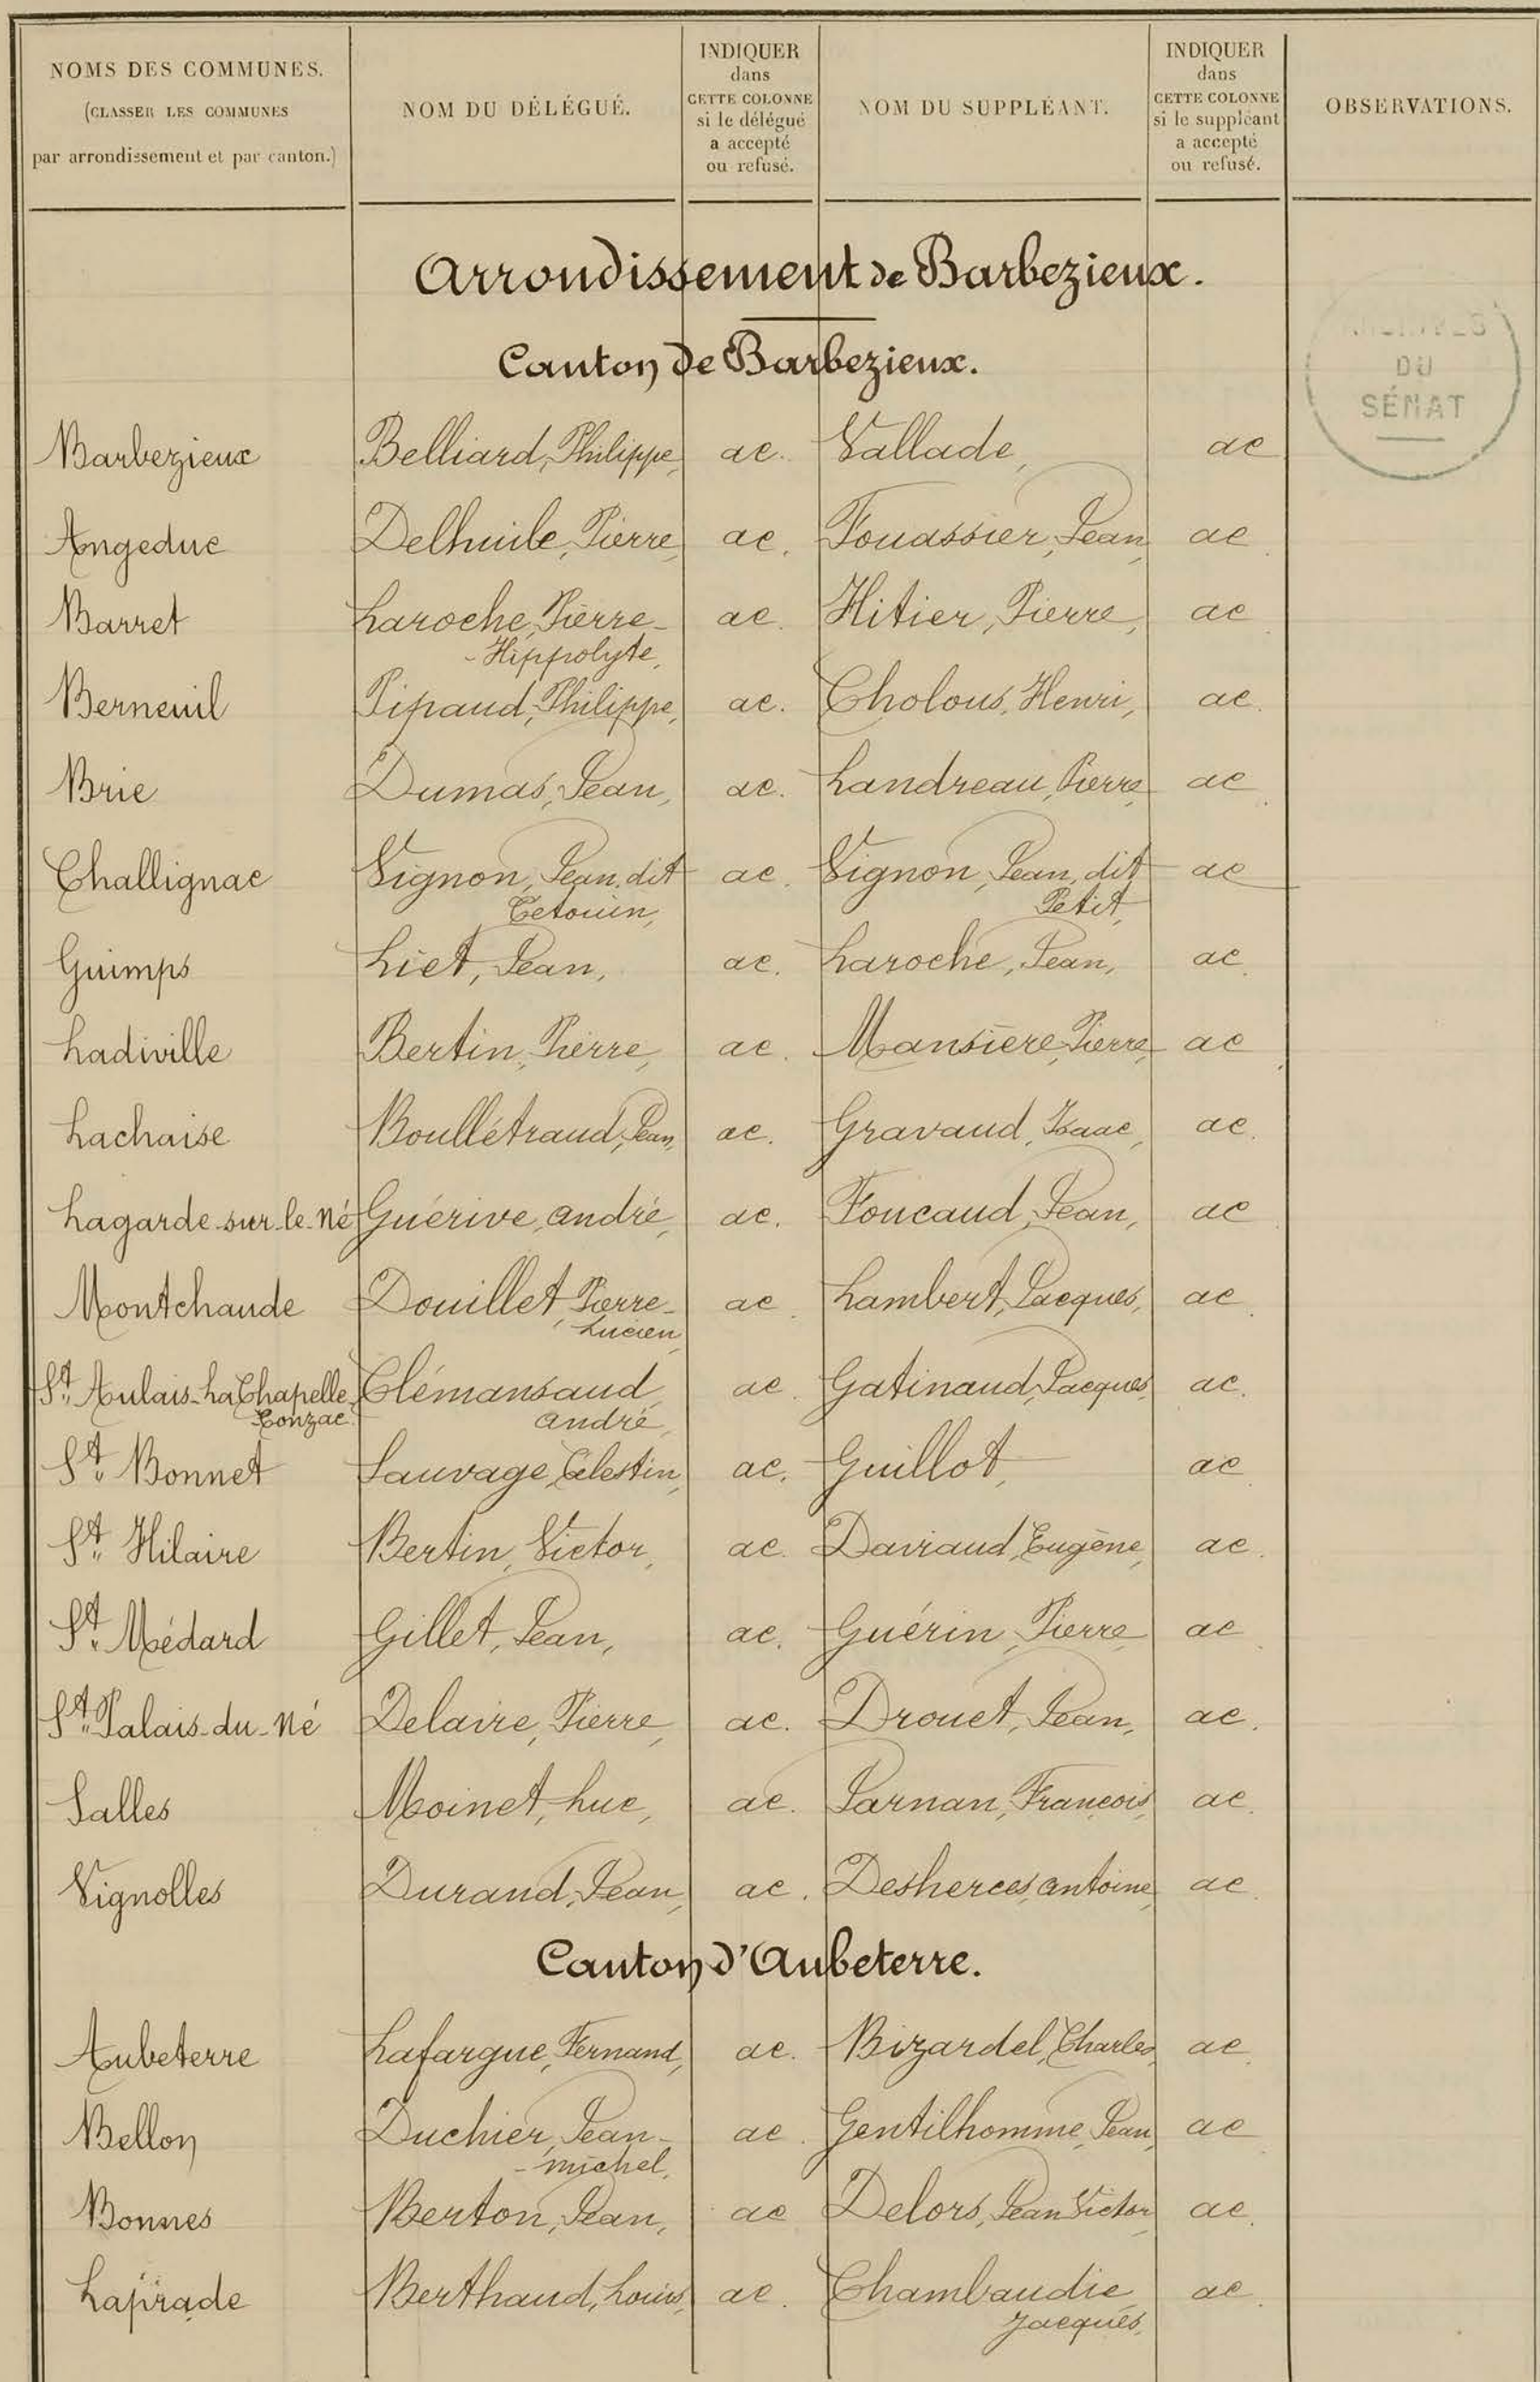 NOMS DES COMMUNES.
(CLASSER LES COMMUNES
par arrondissement et par canton.)
NOM DU DÉLÉGUÉ.
INDIQUER
dans
CETTE COLONNE
si le délégué
a accepté
ou refusé.
NOM DU SUPPLÉANT.
INDIQUER
dans
CETTE COLONNE
si le suppléant
a accepté
ou refusé.
OBSERVATIONS.
Arrondissement de Barbezieux.
Canton de Barbezieux.
DU
SÉNAT
Barbezieux Belliard, Philippe, ac. Vallade, ac
Angeduc Delhuile, Pierre, ac. Fouassier, Jean, ac.
Barret Laroche, Pierre- ac. Hitier, Pierre, ac.
-Hippolyte,
Berneuil Pipaud, Philippe, ac. Cholous, Henri, ac.
Brie Dumas, Jean, ac. Landreau, Pierre, ac.
Challignac Vignon, Jean, dit ac. Vignon, Jean, dit ac
Petit,
Guimps Liet, Jean, ac. Laroche, Jean, ac.
Ladiville Bertin, Pierre, ac. Mansière, Pierre, ac.
Lachaise Boullétraud, Jean, ac. Gravaud, Isaac, ac.
Lagarde-sur-le-Né Guérive, André, ac. Foucaud, Jean, ac
Montchaude Douillet, Pierre- ac. Lambert, Jacques, ac.
Lucien,
St. Aulais-La Chapelle- Clémansaud, ac. Gatinaud, Jacques, ac.
Conzac. André,
St. Bonnet Sauvage, Célestin, ac. Guillot, ac.
St. Hilaire Bertin, Victor, ac. Daviaud, Eugène, ac.
St. Médard Gillet, Jean, ac. Guérin, Pierre, ac.
St. Palais-du-Né Delaire, Pierre, ac. Drouet, Jean, ac.
Salles Moinet, Luc, ac. Jarnan, François, ac.
Vignolles Durand, Jean, ac. Desherces, Antoine, ac.
Canton d'Aubeterre.
Aubeterre Lafargue, Fernand, ac. Bizardel, Charles, ac.
Bellon Duchier, Jean- ac. Gentilhomme, Jean, ac
-Michel,
Bonnes Berton, Jean, ac Delors, Jean Victor ac.
Laprade Berthaud, Louis, ac. Chambaudie ac.
Jacques,